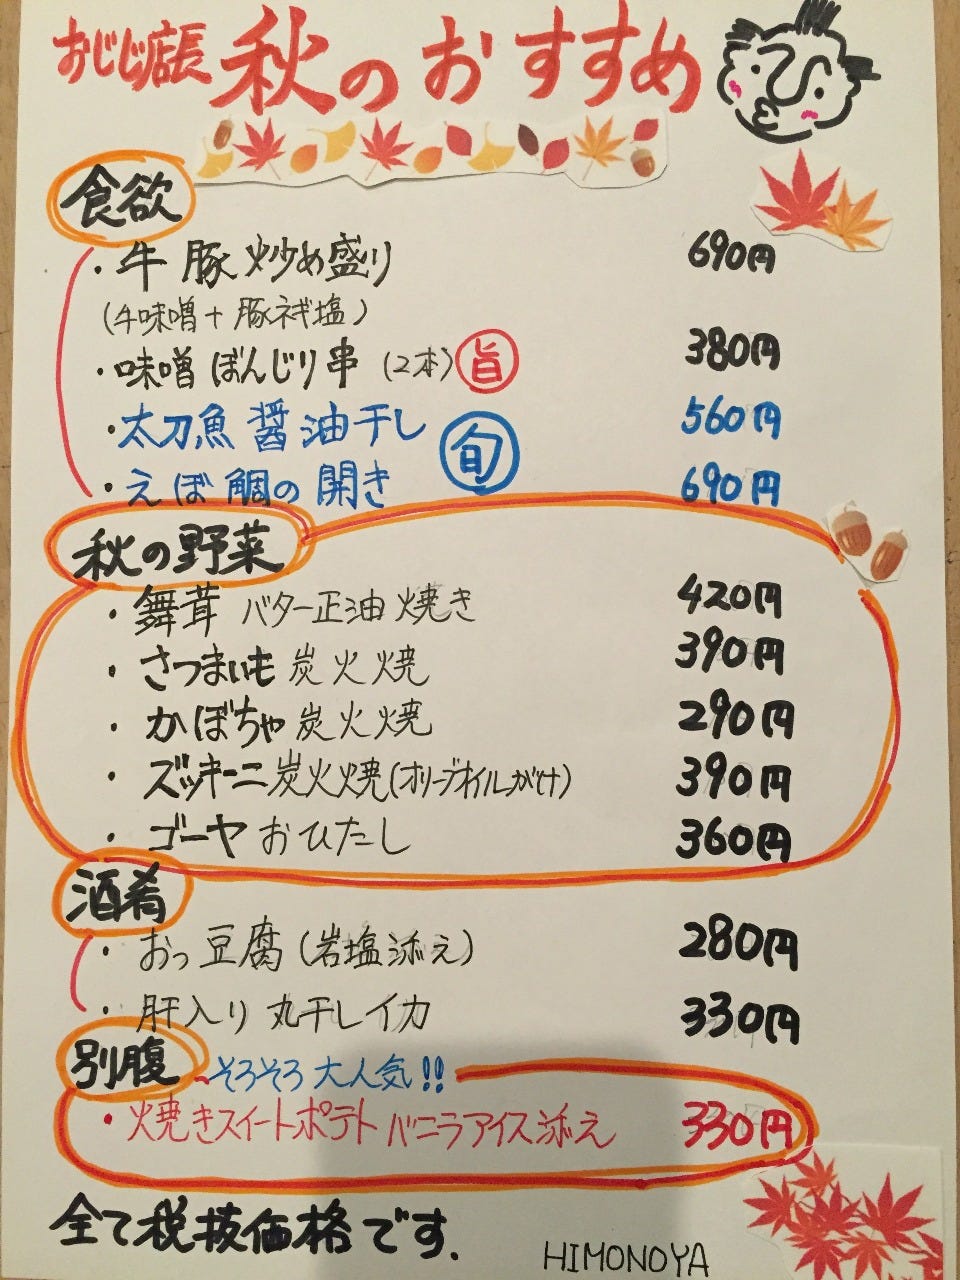 おじじ店長 秋のおすすめ
食欲
・牛豚炒め盛り 690円
(牛味噌+豚ネギ塩)
・味噌ぼんじり串(2本) 旨 380円
・太刀魚醤油干し 560円
旬
・えぼ鯛の開き 690円
秋の野菜
・舞茸 バター正油焼き 420円
・さつまいも炭火焼 390円
・かぼちゃ炭火焼 290円
・ズッキーニ炭火焼(オリーブオイルがけ) 390円
・ゴーヤおひたし 360円
酒肴
・おっ豆腐(岩塩添え) 280円
・肝入り丸干しイカ 330円
別腹 そろそろ大人気!!
・焼きスイートポテトバニラアイス添え 330円
全て税抜価格です.
HIMONOYA